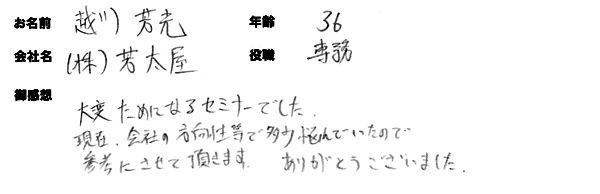 お名前 越川 芳光 年齢 36
会社名 (株)芳太屋 役職 専務
御感想
大変ためになるセミナーでした.
現在、会社の方向性等で多少悩んでいたので
参考にさせて頂きます. ありがとうございました.